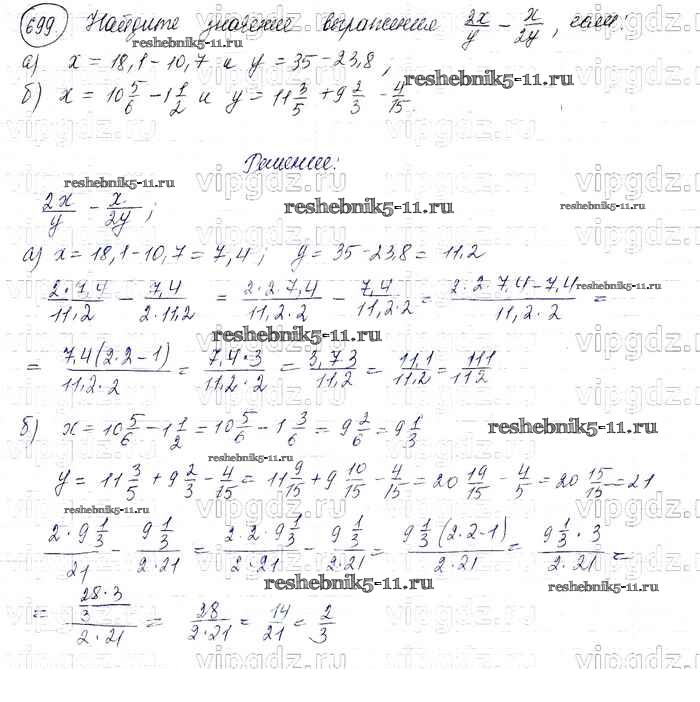 699 Найдите значение выражения 2x/y − x/2y, если:
reshebnik5-11.ru
а) x = 18,1 − 10,7 и y = 35 − 23,8;
б) x = 10 5/6 − 1 1/2 и y = 11 3/5 + 9 2/3 − 4/15.
reshebnik5-11.ru
reshebnik5-11.ru
vipgdz.ru
Решение:
reshebnik5-11.ru
vipgdz.ru
2x/y − x/2y;
reshebnik5-11.ru
reshebnik5-11.ru
а) x = 18,1 − 10,7 = 7,4; y = 35 − 23,8 = 11,2
2·7,4/11,2 − 7,4/2·11,2 = 2·2·7,4/11,2·2 − 7,4/11,2·2 = 2·2·7,4−7,4/11,2·2 =
reshebnik5-11.ru
reshebnik5-11.ru
= 7,4(2·2−1)/11,2·2 = 7,4·3/11,2·2 = 3,7·3/11,2 = 11,1/11,2 = 111/112
б) x = 10 5/6 − 1 1/2 = 10 5/6 − 1 3/6 = 9 2/6 = 9 1/3
reshebnik5-11.ru
reshebnik5-11.ru
y = 11 3/5 + 9 2/3 − 4/15 = 11 9/15 + 9 10/15 − 4/15 = 20 19/15 − 4/5 = 20 15/15 = 21
reshebnik5-11.ru
reshebnik5-11.ru
2·9 1/3/21 − 9 1/3/2·21 = 2·2·9 1/3/2·21 − 9 1/3/2·21 = 9 1/3(2·2−1)/2·21 = 9 1/3·3/2·21 =
reshebnik5-11.ru
reshebnik5-11.ru
= 28·3/3/2·21 = 28/2·21 = 14/21 = 2/3
vipgdz.ru